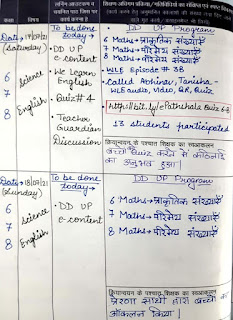 To be done
today→
DD UP Program
Date→ 17/07/21
(Saturday)
• DD UP
e-content
6 Maths→प्राकृतिक संख्याएँ
7 Maths→परिमेय संख्याएँ
8 Maths→परिमेय संख्याएँ
6
7
8
Science
English
• We Learn
English
• Quiz # 4
• Teacher
Guardian
Discussion
• WLE Episode # 38
• Called Abhinav, Tanisha -
WLE audio, video, QR, Quiz
13 students participated
बच्चों को Quiz करने में कठिनाई
का अनुभव हुआ।
Date→ 18/07/21
(Sunday)
To be done
today→
DD UP Program
6
7
8
Science
English
• DD UP
e-content
6 Maths→प्राकृतिक संख्याएँ
7 Maths→परिमेय संख्याएँ
8 Maths→परिमेय संख्याएँ
प्रेरणा साथी द्वारा बच्चों का
आँकलन किया।